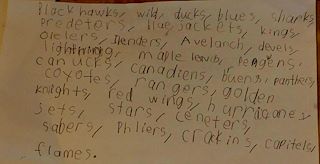 Blackhawks, wild, ducks, blues, sharks,
predeters, blue jackets, kings,
oielers, ilenders, Avelanch, devels,
lightning, maple leavb, pengens,
canucks, canadiens, bruens, panthers,
coyotes, rangers, golden
knights, red wings, hurricanes,
jets, stars, ceneters,
sabers, phliers, crackins, capitels,
flames.